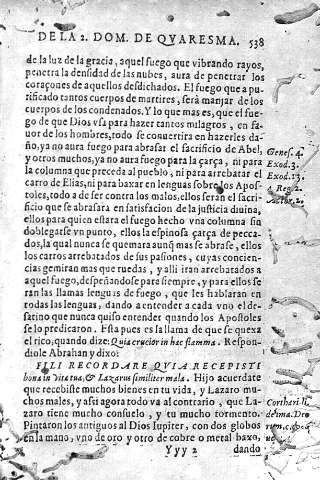 DE LA 2. DOM. DE QVARESMA. 538
de la luz de la gracia, aquel fuego que vibrando rayos,
penetra la densidad de las nubes, aura de penetrar los
coraçones de aquellos desdichados. El fuego que a pu-
rificado tantos cuerpos de martires, serà manjar de los
cuerpos de los condenados. Y lo que mas es, que el fue-
go de que Dios vsa para hazer tantos milagros, en fa-
uor de los hombres, todo se conuertira en hazerles da-
ño, ya no aura fuego para abrasar el sacrificio de Abel,
y otros muchos, ya no aura fuego para la çarça, ni para
la columna que preceda al pueblo, ni para arrebatar el
carro de Elias, ni para baxar en lenguas sobre los Apos-
toles, todo a de ser contra los malos, ellos seràn el sacri-
ficio que se abrasara en satisfacion de la justicia diuina,
ellos para quien estara el fuego hecho vna columna sin
doblegarse vn punto, ellos la espinosa çarça de pecca-
dos, la qual nunca se quemara aunq̃ mas se abrase, ellos
los carros arrebatados de sus pasiones, cuyas concien-
cias gemiran mas que ruedas, y alli iran arrebatados a
aquel fuego, despeñandose para siempre, y para ellos se
ran las llamas lenguas de fuego, que les hablaran en
todas las lenguas, dando a entender a cada vno el de-
satino que nunca quiso entender quando los Apostoles
se lo predicaron. Esta pues es la llama de que se quexa
el rico, quando dize: Quia crucior in hac flamma. Respon-
diole Abrahan y dixo:
FILI RECORDARE QVIA RECEPISTI
bona in vita tua, & Lazarus similiter mala. Hijo acuerdate
que recebiste muchos bienes en tu vida, y Lazaro mu-
chos males, y assi agora todo va al contrario, que La-
zaro tiene mucho consuelo, y tu mucho tormento.
Pintaron los antiguos al Dios Iupiter, con dos globos
en la mano, vno de oro y otro de cobre o metal baxo,
Yyy 2 dando
Genes. 4.
Exod. 3.
Exod. 13.
4. Reg. 2.
Actor. 2.